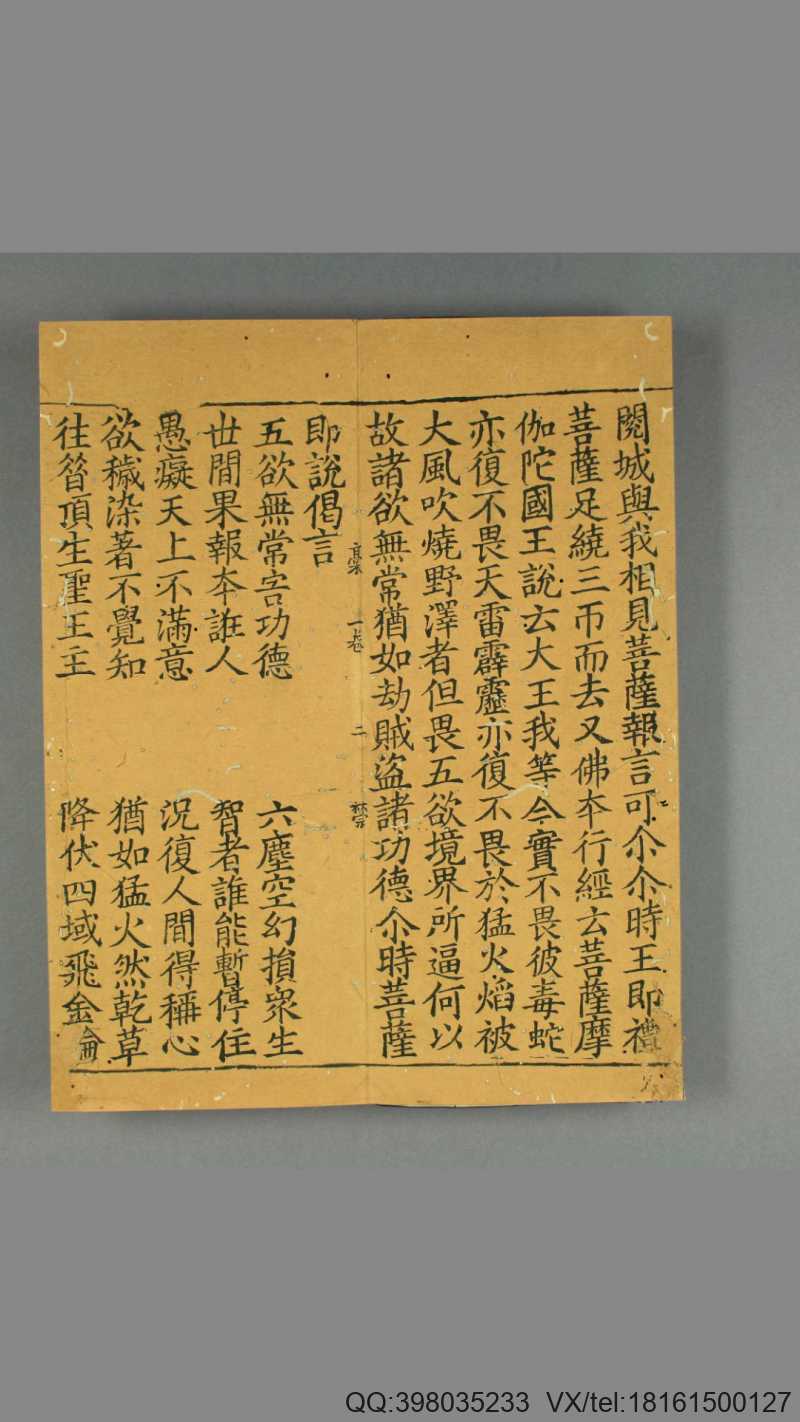 閱城與我相見菩薩報言可尒尒時王即禮
菩薩足繞三帀而去又佛夲行經云菩薩摩
伽陀國王說云大王我等今實不畏彼毒蛇
亦復不畏天雷霹靂亦復不畏於猛火焰被
大風吹燒野澤者但畏五欲境界所逼何以
故諸欲無常猶如劫賊盜諸功德尒時菩薩
一卷
二
即說偈言
五欲無常害功德 六塵空幻損衆生
世間果報夲誑人 智者誰能暫停住
愚癡天上不滿意 況復人間得稱心
欲穢染著不覺知 猶如猛火然乾草
往昝頂生聖王主 降伏四域飛金
QQ:398035233 VX/tel:18161500127